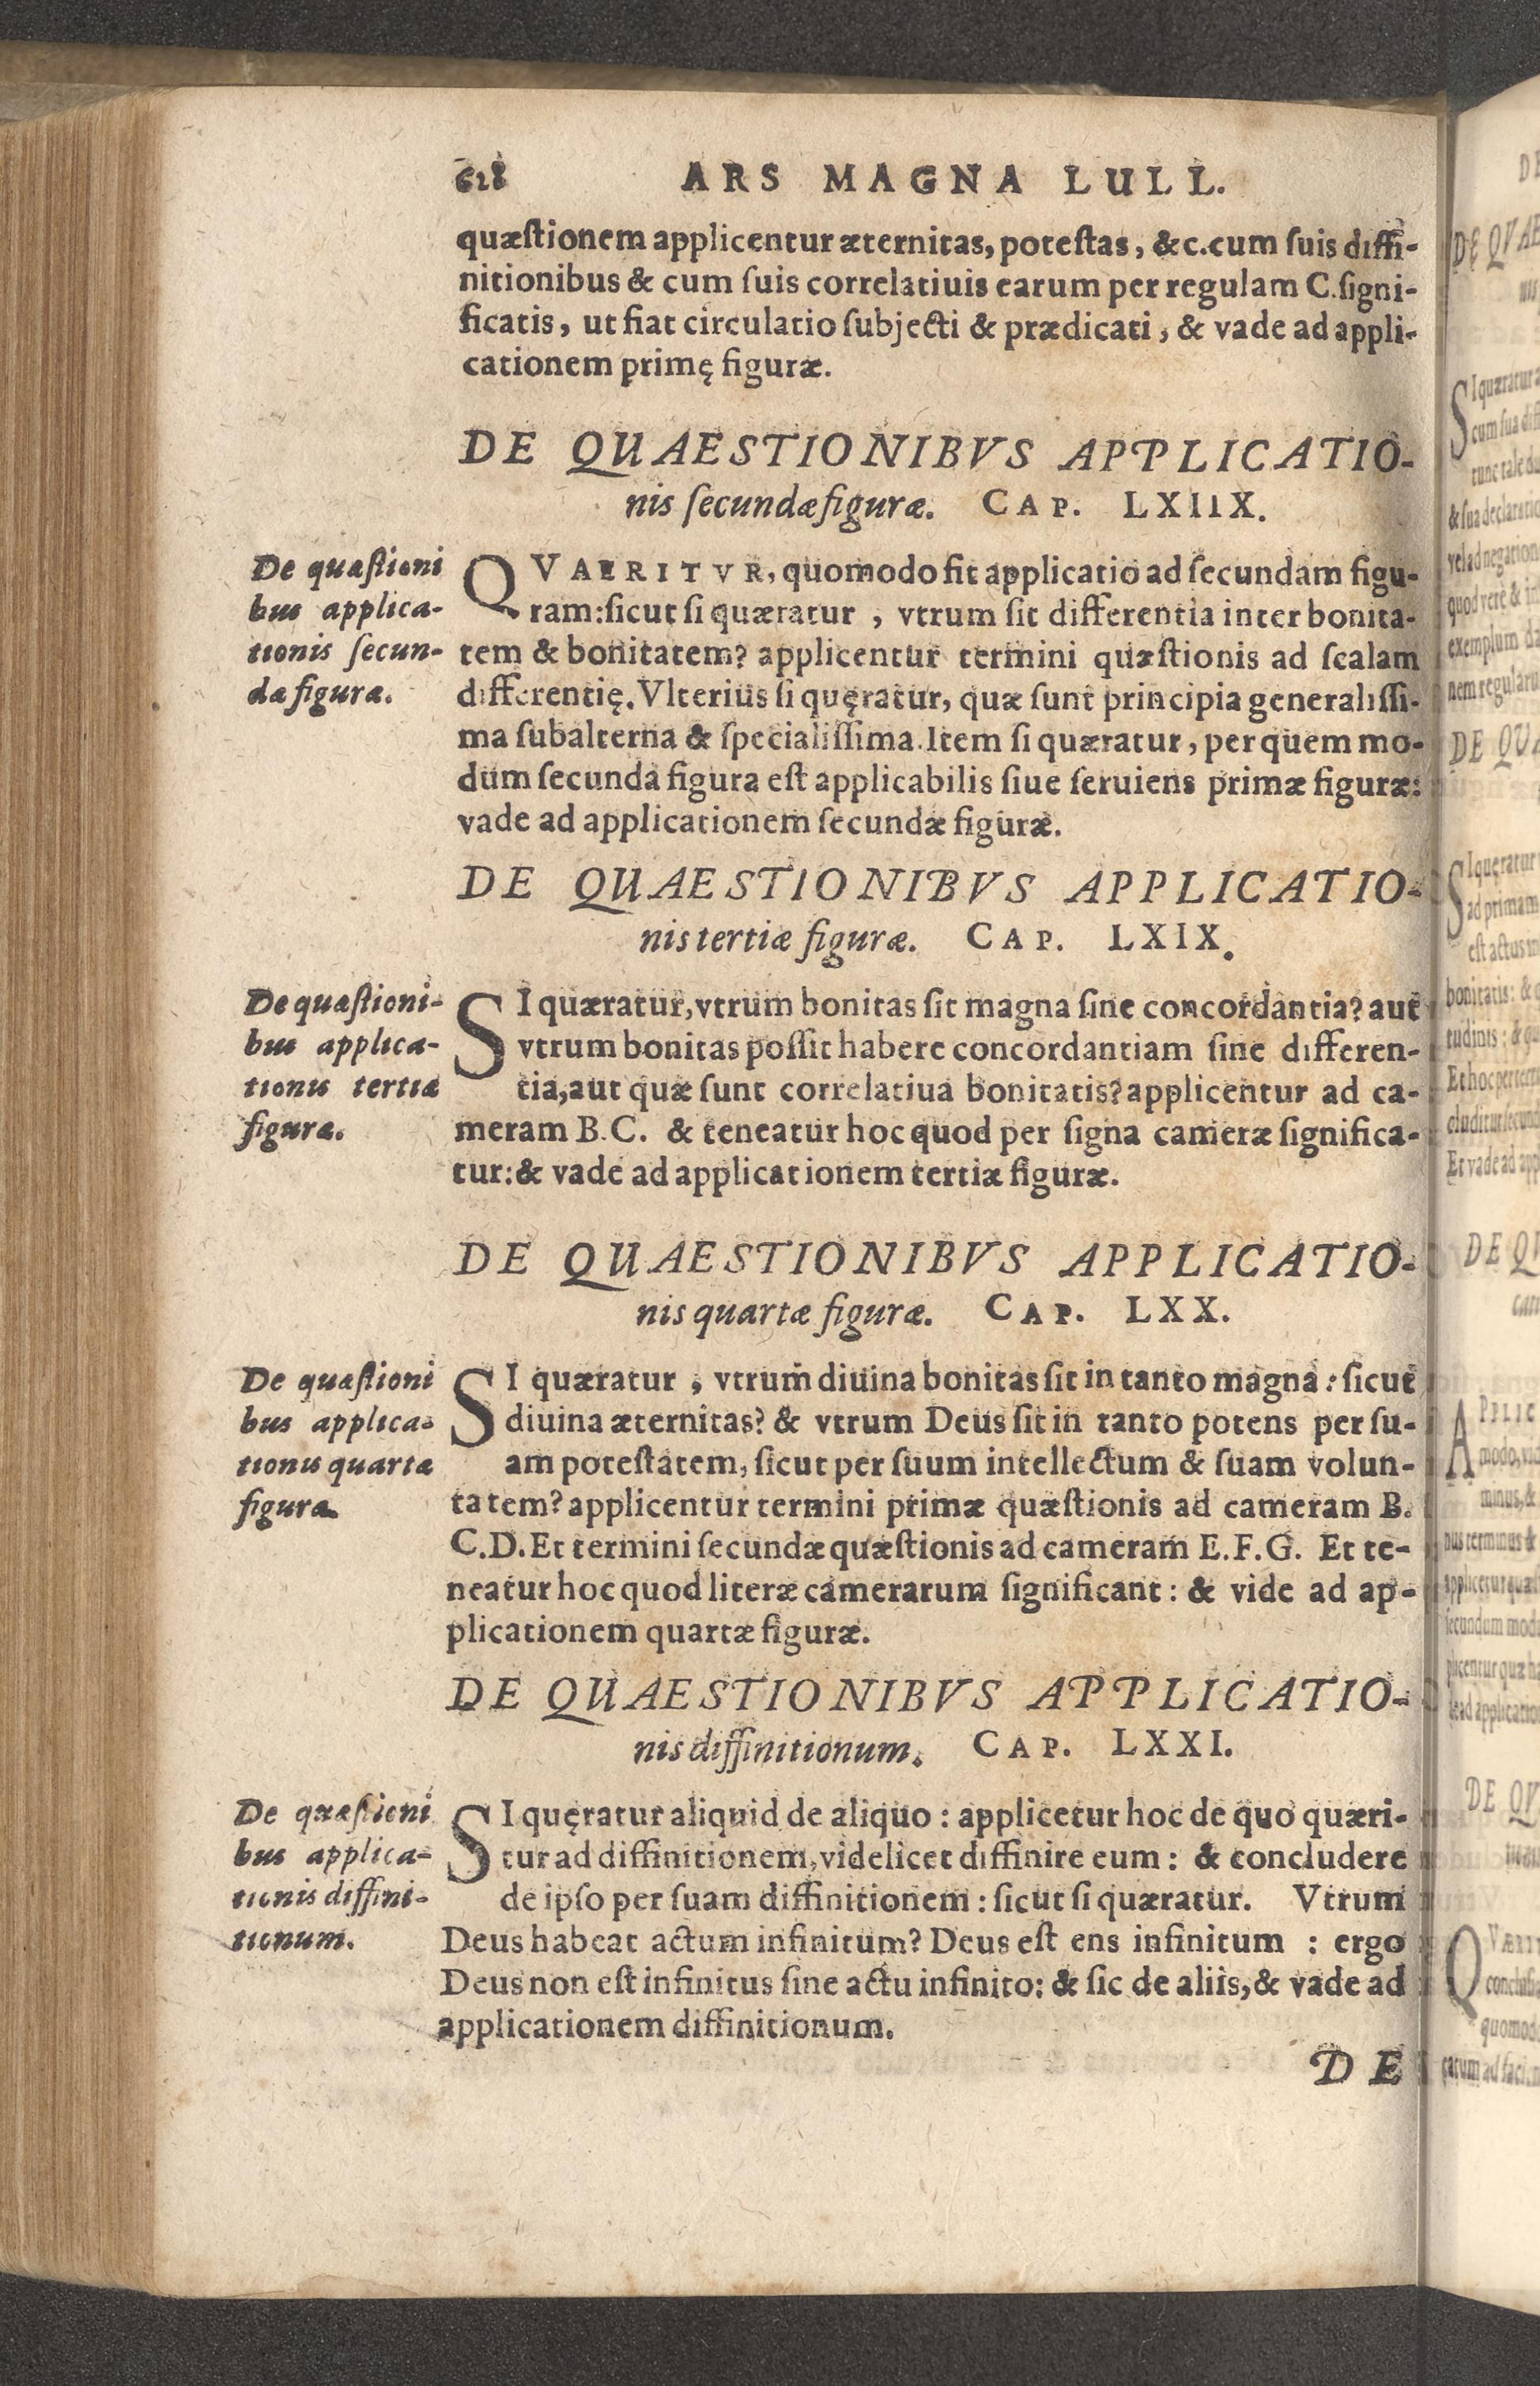 628 ARS MAGNA LULL.
quæſtionem applicentur æternitas, poteſtas, &c. cum ſuis diffi-
nitionibus & cum ſuis correlatiuis earum per regulam C. ſigni-
ficatis, ut fiat circulatio ſubjecti & prædicati, & vade ad appli-
cationem primę figuræ.
DE QUAESTIONIBVS APPLICATIO-
nis ſecundæ figuræ. CAP. LXIIX.
De quæſtioni
bus applica-
tionis ſecun-
dæ figuræ.
QVAERITVR, quomodo fit applicatio ad ſecundam figu-
ram: ſicut ſi quæratur, vtrum ſit differentia inter bonita-
tem & bonitatem? applicentur termini quæſtionis ad ſcalam
differentię. Vlterius ſi quęratur, quæ ſunt principia generaliſſi-
ma ſubalterna & ſpecialiſſima. Item ſi quæratur, per quem mo-
dum ſecunda figura eſt applicabilis ſiue ſeruiens primæ figuræ:
vade ad applicationem ſecundæ figuræ.
DE QUAESTIONIBVS APPLICATIO-
nis tertiæ figuræ. CAP. LXIX.
De quæſtioni-
bus applica-
tionis tertiæ
figuræ.
SI quæratur, vtrum bonitas ſit magna ſine concordantia? aut
vtrum bonitas poſſit habere concordantiam ſine differen-
tia, aut quæ ſunt correlatiua bonitatis? applicentur ad ca-
meram B. C. & teneatur hoc quod per ſigna cameræ ſignifica-
tur: & vade ad applicationem tertiæ figuræ.
DE QUAESTIONIBVS APPLICATIO-
nis quartæ figuræ. CAP. LXX.
De quæſtioni
bus applica-
tionis quartæ
figuræ.
SI quæratur, vtrum diuina bonitas ſit in tanto magna: ſicut
diuina æternitas? & vtrum Deus ſit in tanto potens per ſu-
am poteſtatem, ſicut per ſuum intellectum & ſuam volun-
tatem? applicentur termini primæ quæſtionis ad cameram B.
C. D. Et termini ſecundæ quæſtionis ad cameram E. F. G. Et te-
neatur hoc quod literæ camerarum ſignificant: & vide ad ap-
plicationem quartæ figuræ.
DE QUAESTIONIBVS APPLICATIO-
nis diffinitionum. CAP. LXXI.
De quæſtioni
bus applica-
tionis diffini-
tionum.
SI quęratur aliquid de aliquo: applicetur hoc de quo quæri-
tur ad diffinitionem, videlicet diffinire eum: & concludere
de ipſo per ſuam diffinitionem: ſicut ſi quæratur. Vtrum
Deus habeat actum infinitum? Deus eſt ens infinitum: ergo
Deus non eſt infinitus ſine actu infinito: & ſic de aliis, & vade ad
applicationem diffinitionum.
DE